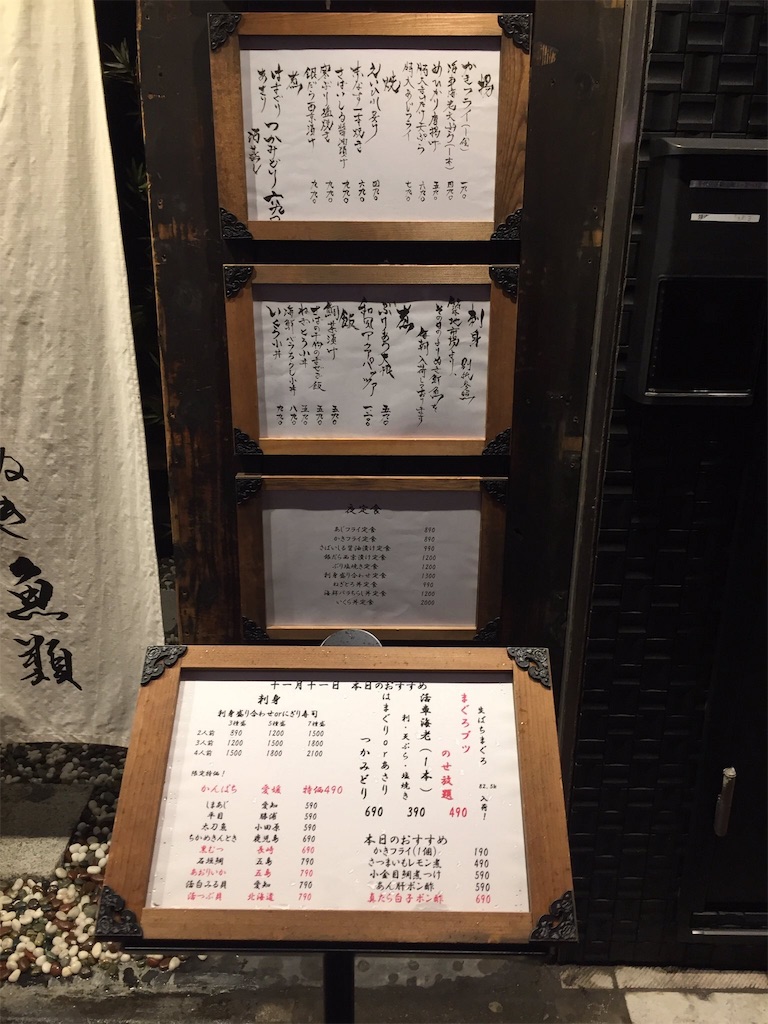 揚
かきフライ(一ヶ) 一九〇
活車海老天ぷら(一本) 四九〇
めひかり唐揚げ 五九〇
豚天 天ぷら 六九〇
あじフライ 七九〇
焼
えいひれ炙り 四九〇
一本焼き 六九〇
さばいしる醤油漬け 七九〇
寒ぶり塩焼き 九九〇
銀だら西京漬け 九九〇
蒸
はまぐり つかみどり 六九〇
あさり 酒蒸し
刺身 別紙参照
築地市場より、
その日のおすすめの鮮魚を
毎朝入荷しております
煮
ぶりあら大根 五九〇
和風アクアパッツァ
飯
鯛茶漬け 五九〇
ねぎとろ小丼
海鮮バラちらし小丼 八九〇
いくら小丼 九九〇
夜定食
あじフライ定食 890
かきフライ定食 890
さばいしる醤油漬け定食 990
銀だら西京漬け定食 1200
ぶり塩焼き定食 1200
刺身盛り合わせ定食 1300
ねぎとろ丼定食 990
海鮮バラちらし丼定食 1200
いくら丼定食 2000
ぬき
魚類
十一月十一日 本日のおすすめ
刺身
刺身盛り合わせorにぎり寿司
3種盛 5種盛 7種盛
2人前 890 1200 1500
3人前 1200 1500 1800
4人前 1500 1800 2100
限定特価!
かんぱち 愛媛 特価490
しまあじ 愛知 590
平目 勝浦 590
太刀魚 小田原 590
ちかめきんとき 鹿児島 690
黒むつ 長崎 690
石垣鯛 五島 790
あおりいか 五島 790
活白みる貝 愛知 790
活つぶ貝 北海道 790
生ばちまぐろ 82.5k 入荷!
まぐろブツ
のせ放題 490
活車海老(1本)
刺・天ぷら・塩焼き 390
はまぐりorあさり
つかみどり 690
本日のおすすめ
かきフライ(1個) 190
さつまいもレモン煮 490
小金目鯛煮つけ 590
あん肝ポン酢 590
真たら白子ポン酢 690